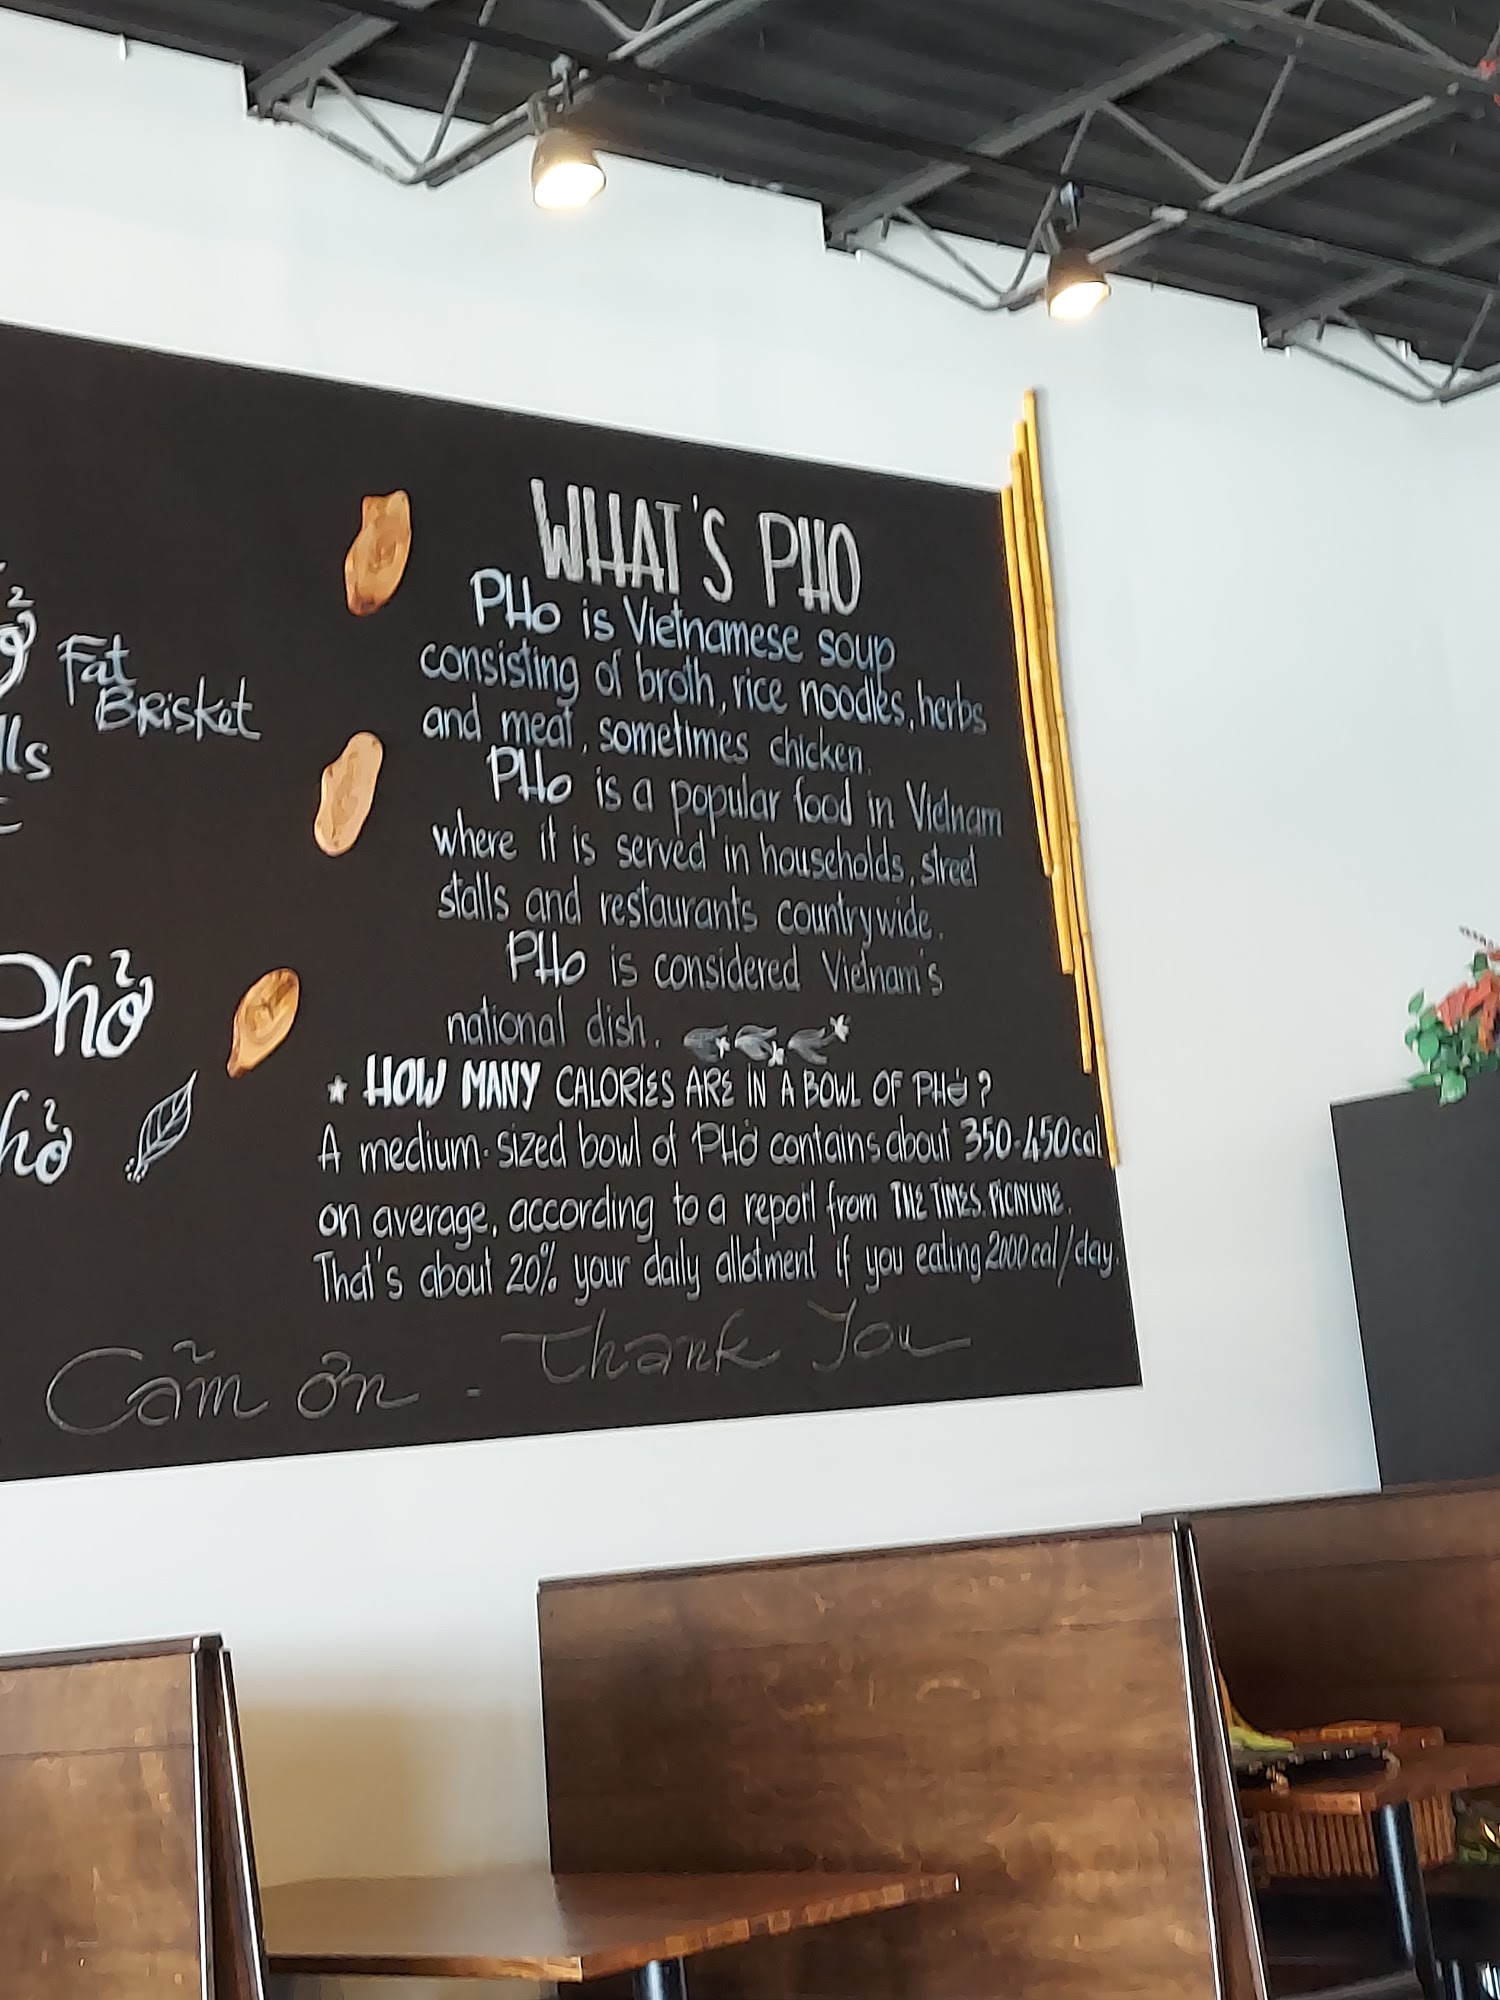 Fat
Brisket
lls
Phở
hở
WHAT'S PHO
PHo is Vietnamese soup
consisting of broth, rice noodles, herbs
and meat, sometimes chicken.
PHo is a popular food in Vietnam
where it is served in households, street
stalls and restaurants countrywide.
PHo is considered Vietnam's
national dish.
HOW MANY CALORIES ARE IN A BOWL OF PHỞ?
A medium-sized bowl of PHỞ contains about 350-450cal
on average, according to a report from THE TIMES. PICAYUNE.
That's about 20% your daily allotment if you eating 2000cal/day.
Cảm ơn - Thank You